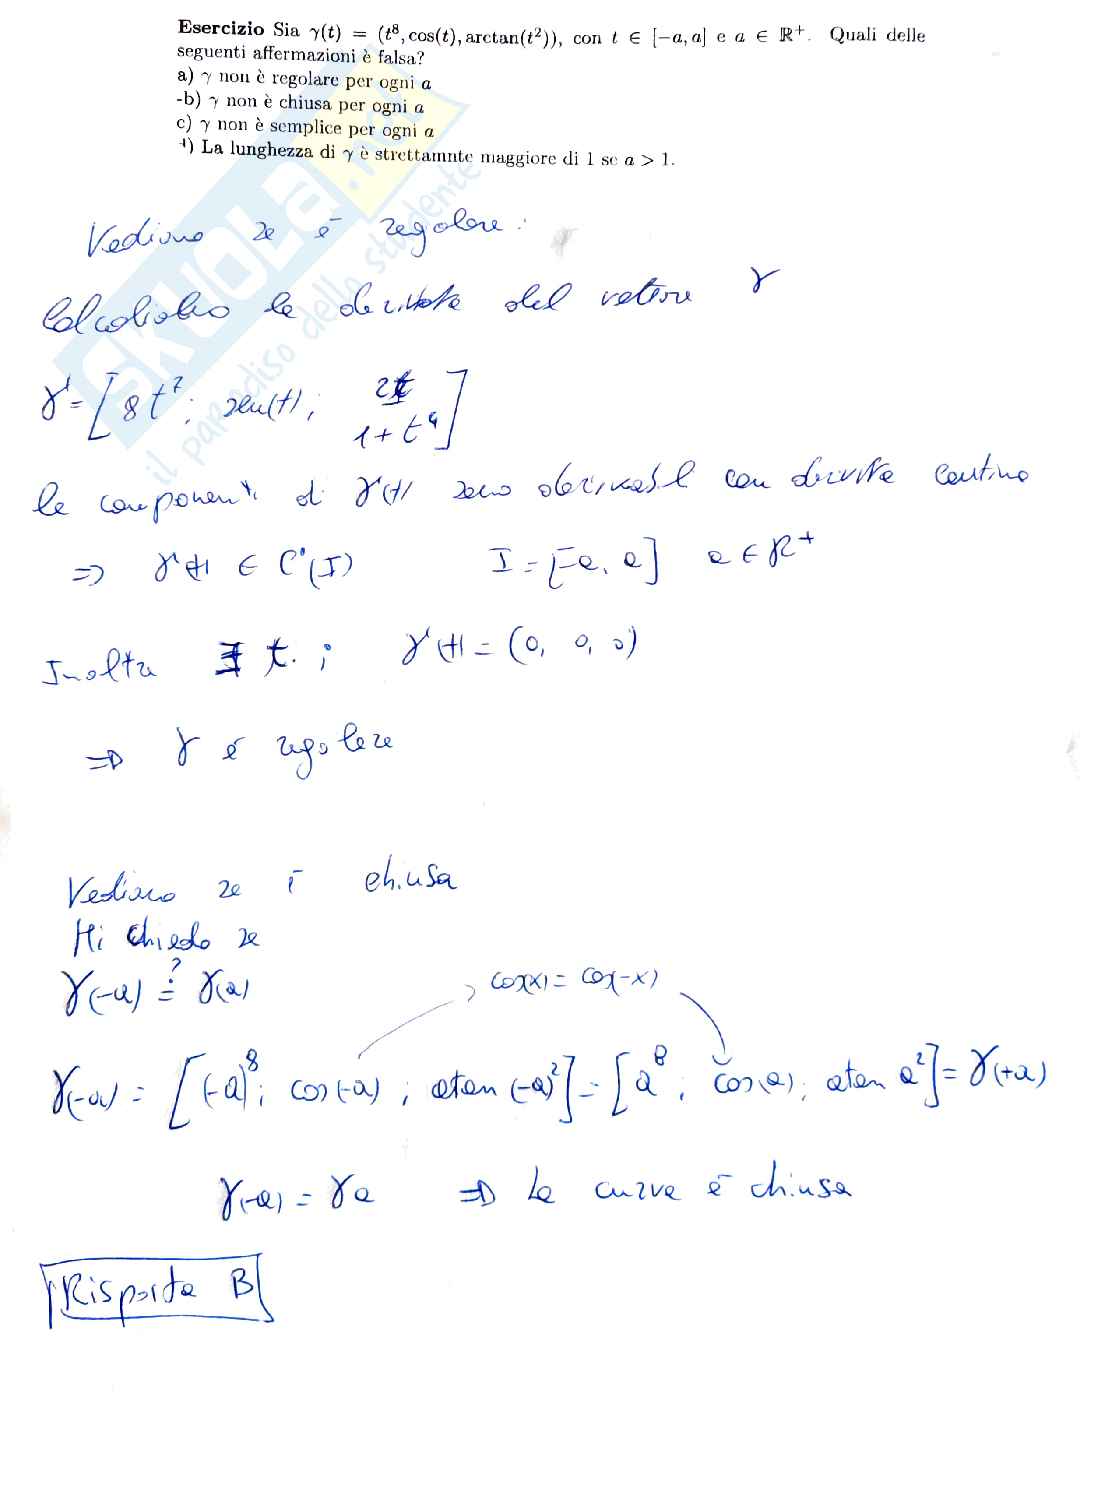 Esercizio Sia γ(t) = (t⁸, cos(t), arctan(t²)), con t ∈ [−a, a] e a ∈ ℝ⁺. Quali delle
seguenti affermazioni è falsa?
a) γ non è regolare per ogni a
-b) γ non è chiusa per ogni a
c) γ non è semplice per ogni a
d) La lunghezza di γ è strettamnte maggiore di 1 se a > 1.
SKUOLA.net
il paradiso dello studente
Vediamo se è regolare:
Calcoliamo la derivata del vettore γ
γ' = [8t⁷; sen(t); 2t / 1+t⁴]
le componenti di γ(t) sono derivabil con derivata continua
⇒ γ(t) ∈ C¹(I) I = [-a, a] a ∈ R⁺
Inoltre ∃ t. ; γ'(t) = (0, 0, 0)
⇒ γ è regolare
Vediamo se è chiusa
Mi chiedo se
γ(-a) =? γ(a)
cos(x) = cos(-x)
γ(-a) = [(-a)⁸; cos(-a); atan(-a)²] = [a⁸; cos(a); atan a²] = γ(+a)
γ(-a) = γa ⇒ La curva è chiusa
Risposta B